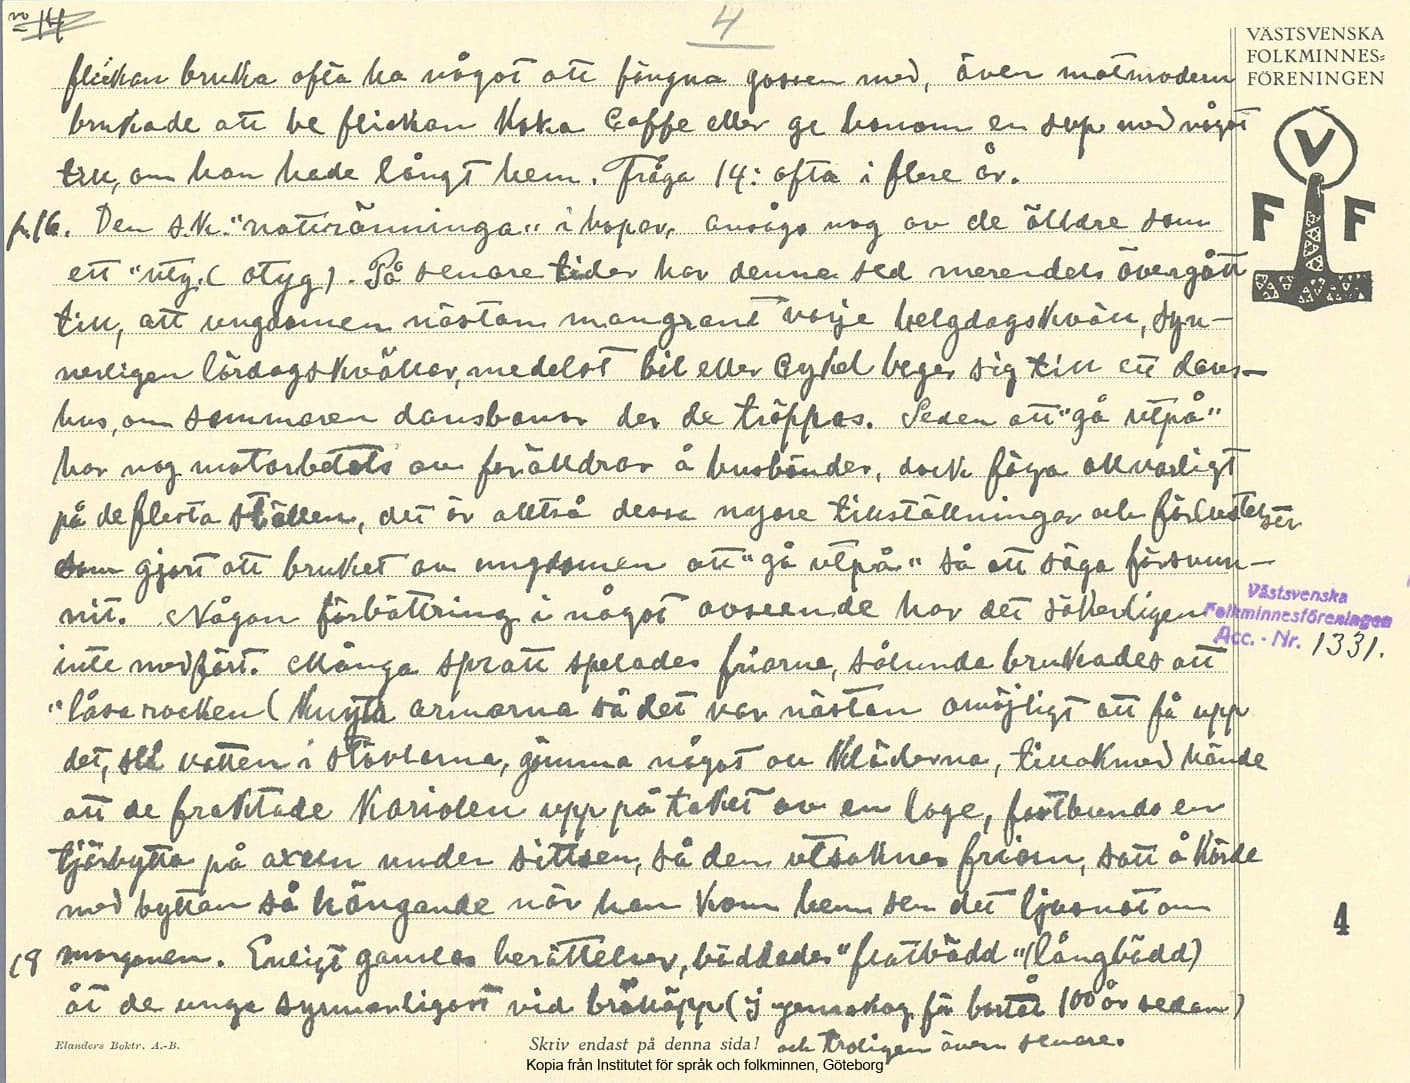 4
VÄSTSVENSKA
FOLKMINNES=
FÖRENINGEN
V
F F
flickan bruka ofta ha något att fängna gossen med, även matmodern
brukade att be flickan koka Caffe eller ge honom en sup med något
till, om han hade långt hem. Fråga 14: ofta i flere år.
fr. 16. Den s.k. "nattränninga" i hopar, ansågs nog av de älldre som
ett "utyg. (otyg). På senare tider har denna sed merendels övergått
till, att ungdomen nästan mangrant varje helgdagskväll, syn-
nerligen lördagskvällar, medelst bil eller Cykel beger sig till ett dans-
hus, om sommaren dansbanor der de träppas. Seden att "gå utpå"
har nog motarbetats av föräldrar å husbönder, dock föga allvarligt
på de flesta ställen, det är alltså dessa nyare tillställningar och förlustelser
som gjort att bruket av ungdomen att "gå utpå" så att säga försvun-
nit. Någon förbättring i något avseende har det säkerligen
inte medfört. Många spratt spelades friarna, sålunda brukades att
"låsa rocken (knyta armarna så det var nästan omöjligt att få upp
det, slå vatten i stövlarna, gömma något av kläderna, till o k med hände
att de fraktade kariolen upp på taket av en loge, fastbundo en
tjärbytta på axeln under sittsen, så den utsaknes friarn, satt å körde
med byttan så hängande när han kom hem sen det ljusnat om
18 morgonen. Enligt gamlas berättelser, bäddades "flatbädd" (långbädd)
åt de unga synnerligast vid bröllopp (i för bortåt 100 år sedan)
och troligen även senare.
Västsvenska
Folkminnesföreningen
Acc. - Nr. 1331.
4
Elanders Boktr. A.-B.
Skriv endast på denna sida!
Kopia från Institutet för språk och folkminnen, Göteborg